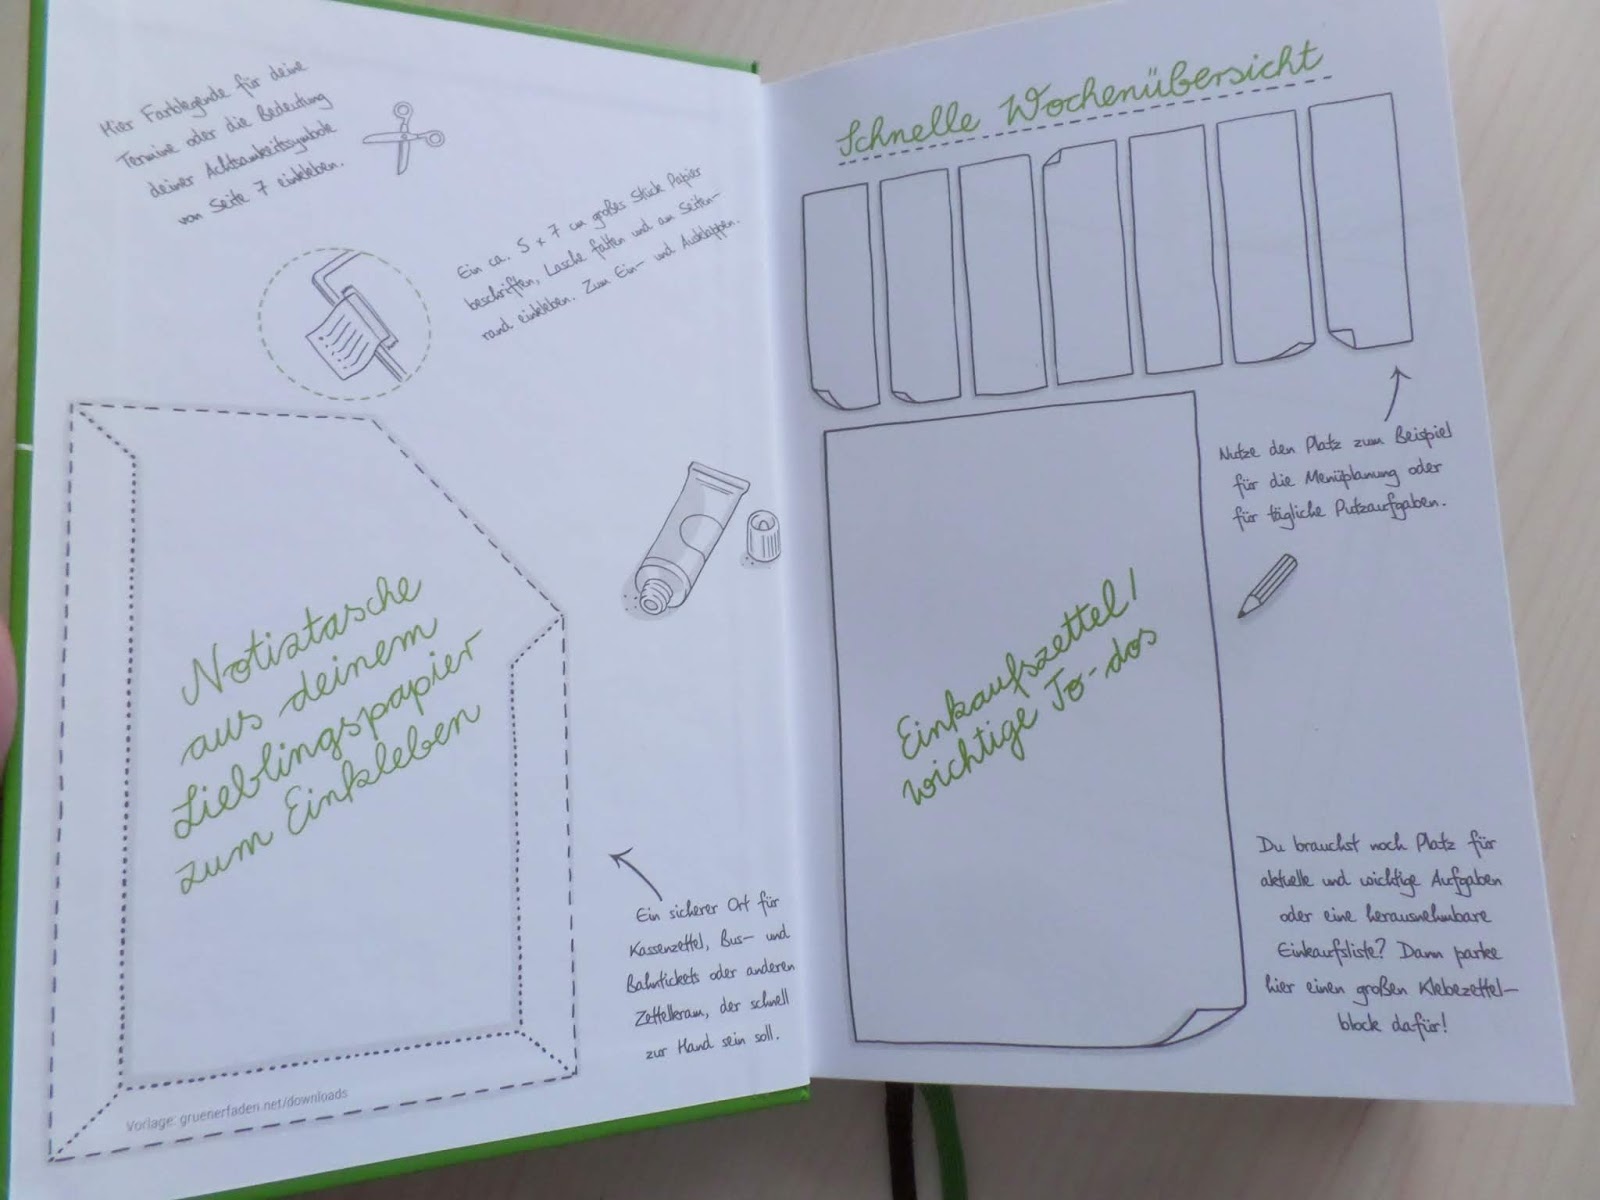 Hier Farblegende für deine
Termine oder die Bedeutung
deiner Achtsamkeitssymbole
von Seite 7 einkleben.
Ein ca. 5 x 7 cm großes Stück Papier
beschriften, Lasche falten und am Seiten-
rand einkleben. Zum Ein- und Ausklappen.
Notiztasche
aus deinem
Lieblingspapier
zum Einkleben
Ein sicherer Ort für
Kassenzettel, Bus- und
Bahntickets oder anderen
Zettelkram, der schnell
zur Hand sein soll.
Vorlage: gruenerfaden.net/downloads
Schnelle Wochenübersicht
Nutze den Platz zum Beispiel
für die Menüplanung oder
für tägliche Putzaufgaben.
Einkaufszettel/
wichtige To-dos
Du brauchst noch Platz für
aktuelle und wichtige Aufgaben
oder eine herausnehmbare
Einkaufsliste? Dann parke
hier einen großen Klebezettel-
block dafür!